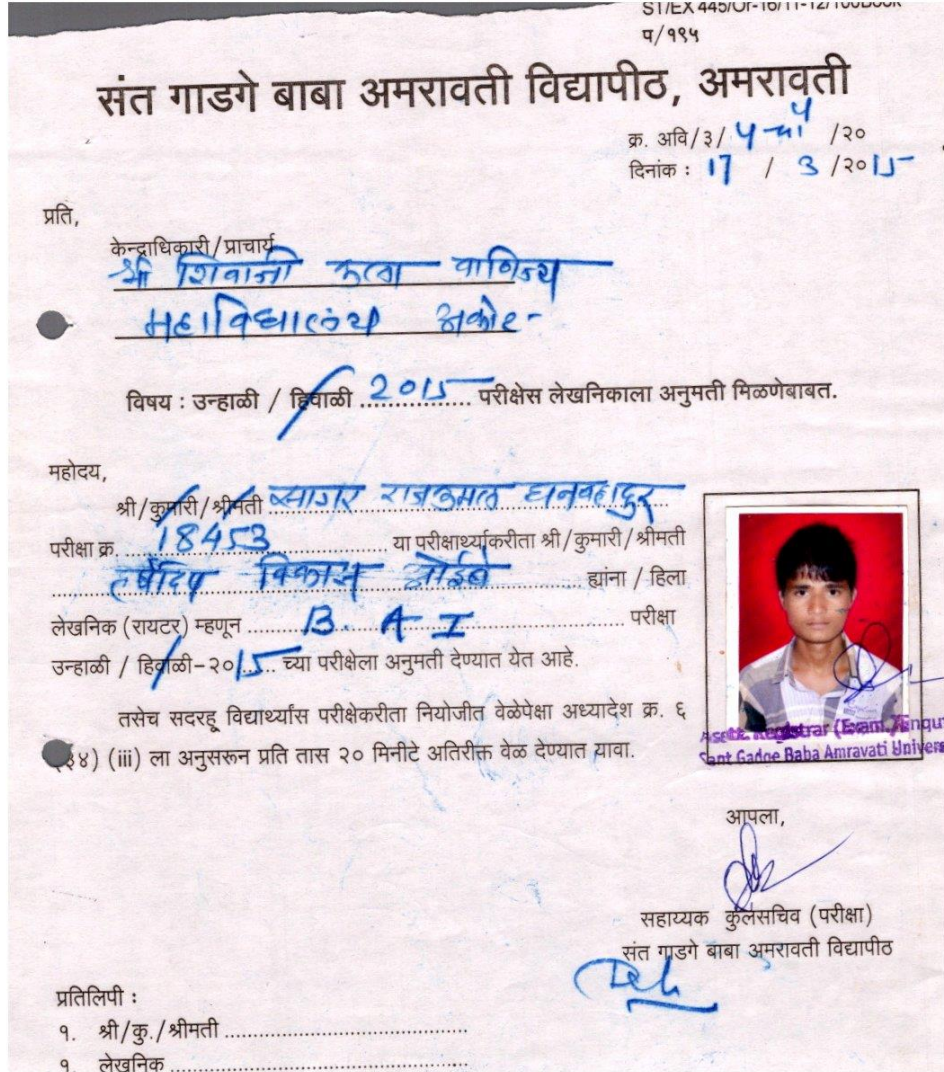 ST/EX 445/Or-16/11-12/100Book
प/१९५
संत गाडगे बाबा अमरावती विद्यापीठ, अमरावती
क्र. अवि/३/ /२०
दिनांक : 17 / 3 /२०15
प्रति,
केन्द्राधिकारी/प्राचार्य
श्री शिवाजी कला वाणिज्य
महाविद्यालय अकोट
विषय : उन्हाळी / हिवाळी 2015 परीक्षेस लेखनिकाला अनुमती मिळणेबाबत.
महोदय,
श्री/कुमारी/श्रीमती सागर राजकुमार धनबहादुर
परीक्षा क्र. 18453 या परीक्षार्थ्याकरीता श्री/कुमारी/श्रीमती
विकास ह्यांना / हिला
लेखनिक (रायटर) म्हणून B. A I परीक्षा
उन्हाळी / हिवाळी-२०15 च्या परीक्षेला अनुमती देण्यात येत आहे.
तसेच सदरहू विद्यार्थ्यांस परीक्षेकरीता नियोजीत वेळेपेक्षा अध्यादेश क्र. ६
४) (iii) ला अनुसरून प्रति तास २० मिनीटे अतिरीक्त वेळ देण्यात यावा.
Asstt. Registrar (Exam./Enqu
Sant Gadge Baba Amravati Univers
आपला,
सहाय्यक कुलसचिव (परीक्षा)
संत गाडगे बाबा अमरावती विद्यापीठ
प्रतिलिपी :
१. श्री/कु./श्रीमती
१. लेखनिक